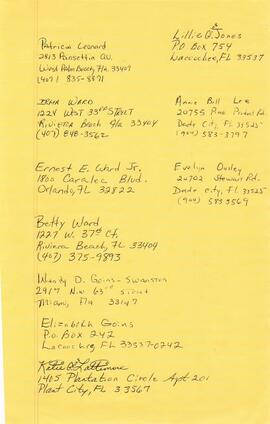 Patricia Leonard
2813 Poinsettia Av.
West Palm Beach, Fla. 33407
(407) 835-8871
Lillie Q. Jones
P.O Box 754
Lacoochee, FL 33537
Irma Ward
1224 West 33rd Street
Riviera Beach Fla 33404
(407) 848-3562
Annie Bill Lee
20755 Pine
Dade City, FL 33525
(904) 583-3797
Ernest E. Ward Jr.
1800 Caralee Blvd.
Orlando, FL 32822
Evelyn Ousley
20702 Stewart Rd.
Dade City, FL 33525
(904) 583 3569
Betty Ward
1227 W. 37th Ct.
Riviera Beach, FL 33404
(407) 375-9893
Wendy D. Goins-Swanston
2917 N.W 63rd Street
Miami, Fla 33147
Elizabeth Goins
P.O. Box 242
Lacoochee, FL 33537-0242
Katie Lattimore
1405 Plantation Circle Apt 201
Plant City, FL 33567